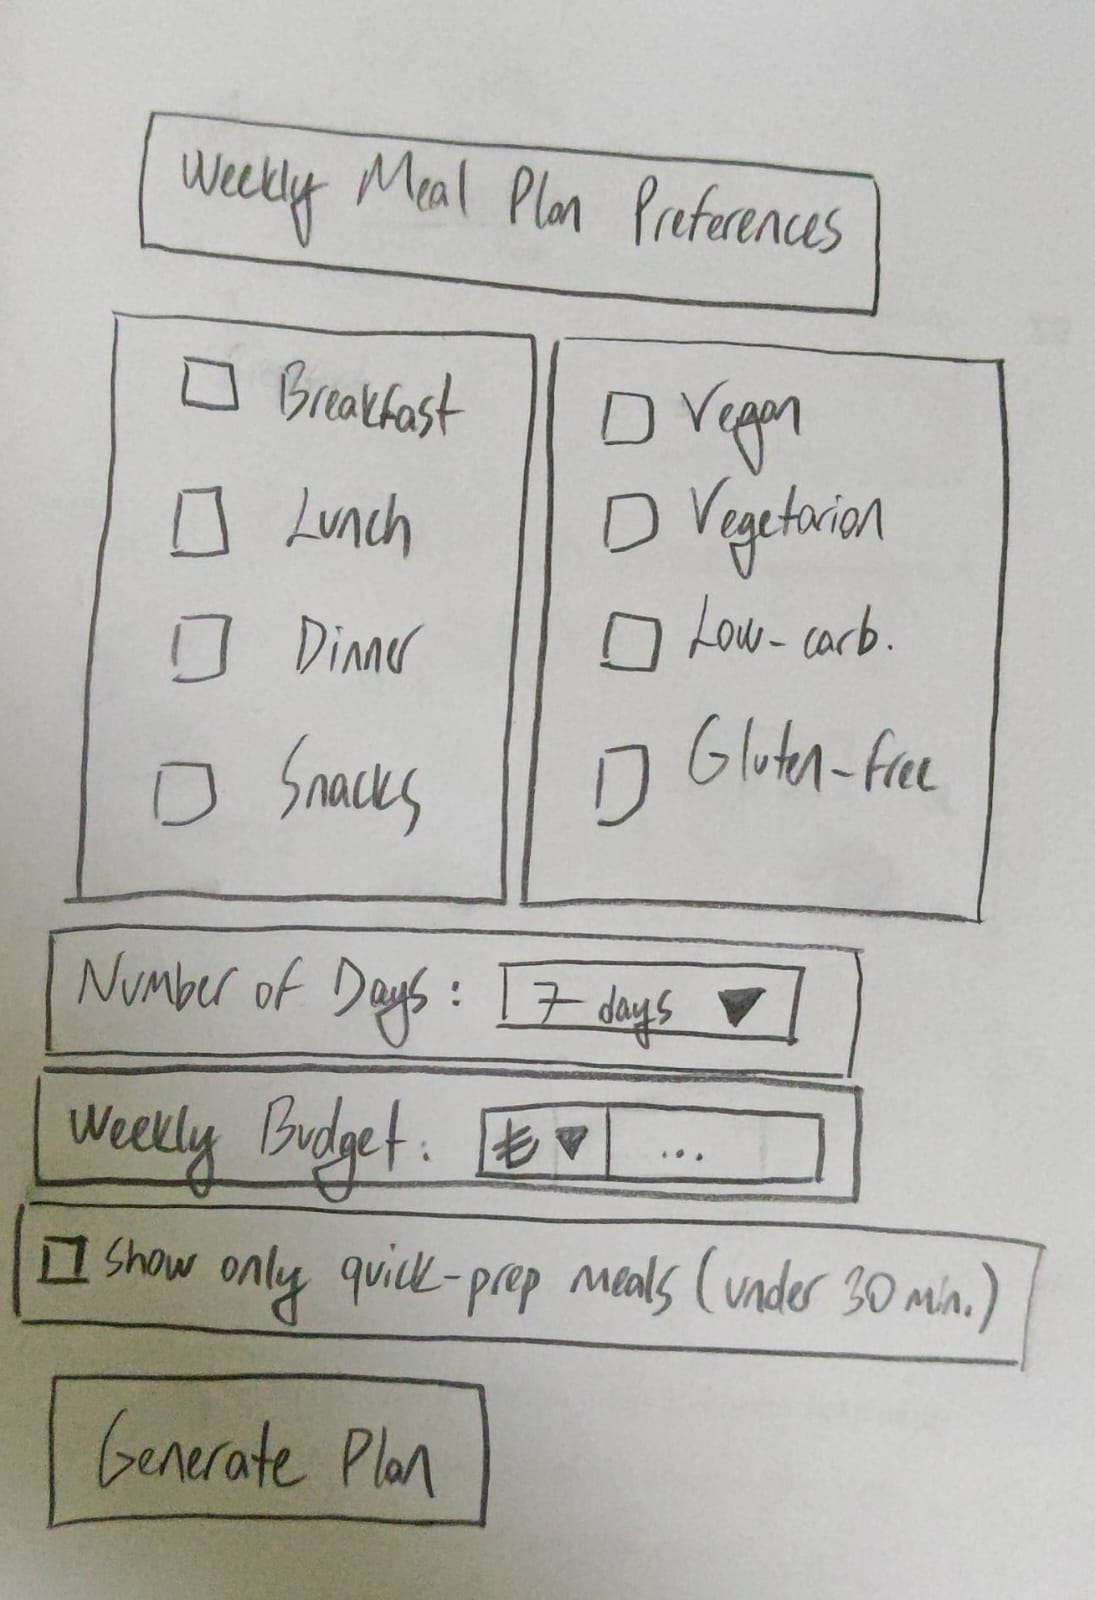 Weekly Meal Plan Preferences
Breakfast
Lunch
Dinner
Snacks
Vegan
Vegetarian
Low-carb.
Gluten-free
Number of Days: 7 days
Weekly Budget: ₺ ...
Show only quick-prep meals (under 30 min.)
Generate Plan